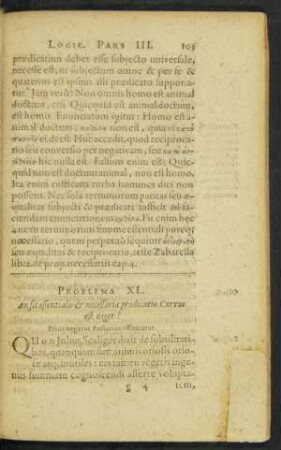 LOGIC. PARS III. 103
prædicatum debet esse subjecto universale,
necesse est, ut subjectum omne & per se &
quatenus est ipsum illi prædicato supponatur
Jam verò: Non omnis homo est animal
doctum, etsi Quicquid est animal doctum,
est homo. Enunciatum igitur: Homo est animal
doctum: non est, quia
ei deest. Huc accedit, quod reciprocatio
seu conversio per negativam, seu
hic nulla est. Falsum enim est: Quicquid
non est doctum animal, non est homo.
Ita enim rusticana turba homines dici non
possent. Nec sola terminorum paritas seu æqualitas
subjecti & prædicati sufficit ad faciendam
enunciationem Fit enim hæc
terminorum summe essentiali
necessario, quem perpetuò sequitur
seu æqualitas & reciprocatio, teste Zabarella
libr. de prop. necessariis cap. 4.
PROBLEMA XL.
An sit essentialis & necessaria prædicatio: Corvus
est niger?
Prius negatur, Posterius affirmatur.
QUON Julius Scaliger dixit de subtilitatibus,
quanquam sint animis otiosis otiosæ
atq; inutiles: eas tamen vegetis ingeniis
summam cognoscendi afferre volupta-
g 4 tem,